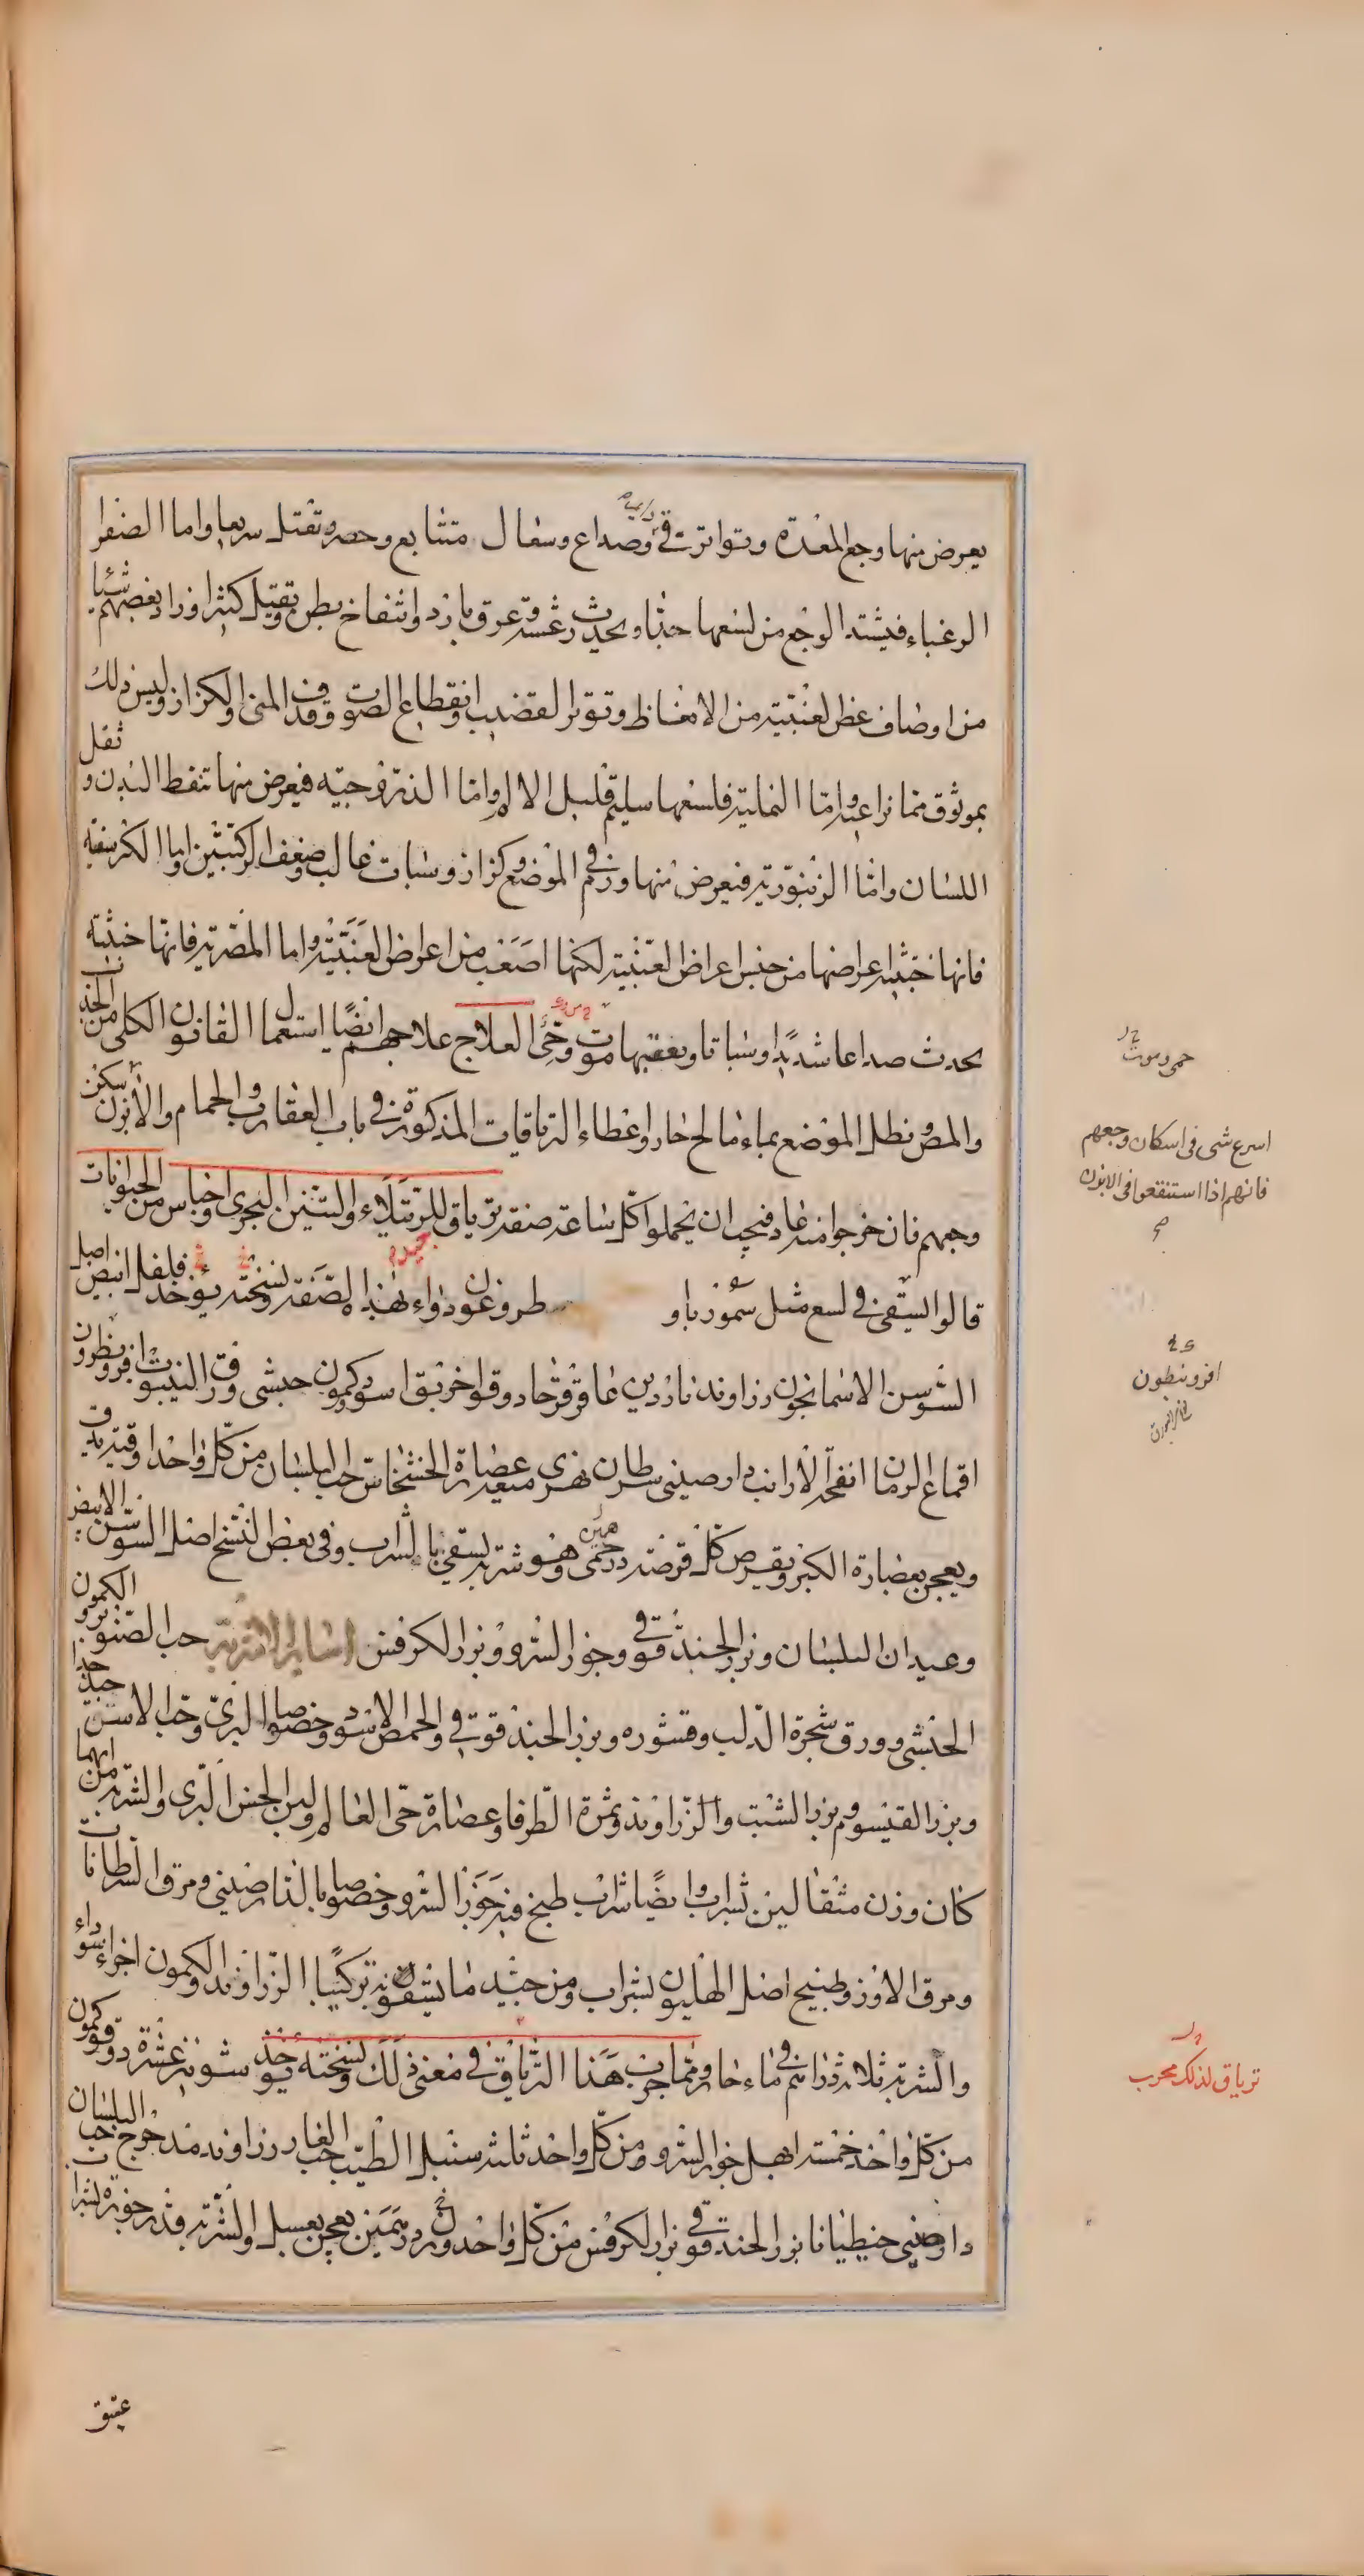 يعرض منها وجع المعدة وتواتر قئ وصداع وسعال متتابع وحصر وتقتل سريعا واما الصفرا
الزغباء فيشتد الوجع من لسعها جدا ويحدث رعشة وعرق بارد وانتفاخ بطن وتقتل كثيرا وزاد بعضهم شيئا
من اوصاف عض العنبية من الانعاظ وتوتر القضيب وانقطاع الصوت وقذف المنى والكزاز وليس ذلك
بموثوق مما نراعيه واما النملية فلسعها سليم قليل الالم واما الذروحية فيعرض منها تنفط البدن وثقل
اللسان واما الزنبورية فيعرض منها ورم في الموضع وكزاز وسبات غالب وضعف الركبتين واما الكرسنية
فانها خبيثة اعراضها من جنس اعراض العنبية لكنها اصعب من اعراض العنبية واما المصرية فانها خبيثة
يحدث صداعا شديدا وسباتا ويعقبها موت وحى العلاج علاجهم ايضا استعمال القانون الكلى من الجذب
والمص ونطل الموضع بماء مالح حار واعطاء الترياقات المذكورة في باب العقارب والحمام والابزن يسكن
وجعهم فان خرجوا منه عاد فيجب ان يحملوا كل ساعة صفة ترياق للرتيلاء والتنين البحرى واجناس من الحيوانات
قالوا يسقى في لسع مثل سموزباو طروغون دواء بهذا الصفة ونسخته يؤخذ فلفل ابيض اصل
السوسن الاسمانجون زراوند ناردين عاقرقرحا دوقوا خربق اسود وكمون حبشى ورق النيبوت افرونطرون
اقماع الرمان انفحة الارانب دارصينى سرطان نهرى ميعة عصارة الخشخاش حب البلسان من كل واحد اوقية يدق
ويعجن بعصارة الكبر ويقرص كل قرصة درخمى وهو شربة يسقى بالشراب وفي بعض النسخ اصل السوسن الابيض
وعيدان البلسان وبزر الحندقوقى وجوز السرو وبزر الكرفس اسائر الاشربة حب الصنوبر والكمون
الحبشى وورق شجرة الدلب وقشوره وبزر الحندقوقى والحمص الاسود وخصوصا البرى وحب الاس جيد جدا
وبزر القيسوم وبزر الشبت والزراوند وثمرة الطرفا وعصارة حى العالم ولبن الخس البرى والشربة من ايها
كان وزن مثقالين بشراب وايضا شراب طبخ فيه جوز السرو وخصوصا بالدارصينى ومرق السرطانات
ومرق الاوز وطبيخ اصل الهليون بشراب ومن جيد ما يسقونه تركيبا الزراوند والكمون اجزاء سواء
والشربة ثلاثة دراهم في ماء حار ومما جرب هذا الترياق في معنى ذلك ونسخته يؤخذ شونيز عشرة دوقو كمون
من كل واحد خمسة ابهل جوز السرو من كل واحد ثلثة سنبل الطيب حب الغار زراوند مدحرج حب البلسان
دارصينى جنطيانا بزر الحندقوقى بزر الكرفس من كل واحد وزن درهمين يعجن بعسل والشربة قدر جوزة بشراب
عتيق
حمى وموت
اسرع شى فى اسكان وجعهم
فانهم اذا استنقعوا فى الابزن
افرونيطون
ترياق لذلك مجرب